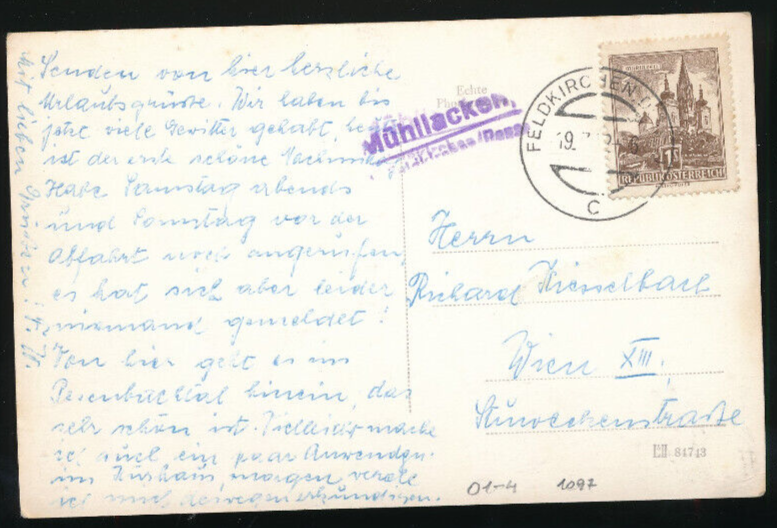 Senden von hier herzliche
Urlaubsgrüße. Wir haben bis
jetzt viele Gewitter gehabt, heute
ist der erste schöne Nachmittag.
Habe Samstag abends
und Sonntag vor der
Abfahrt noch angerufen,
es hat sich aber leider
niemand gemeldet!
Von hier geht es ins
Pesenbachtal hinein, das
sehr schön ist. Vielleicht mache
ich auch ein paar Anwendgn.
im Kurhaus, morgen werde
ich mich deswegen erkundigen.
Mit lieben Grüßen!
Echte
Mühllacken,
FELDKIRCHEN
19.
C
1S
REPUBLIK ÖSTERREICH
Herrn
Richard Kiesselbach
Wien XIII,
84743
01-4 1097